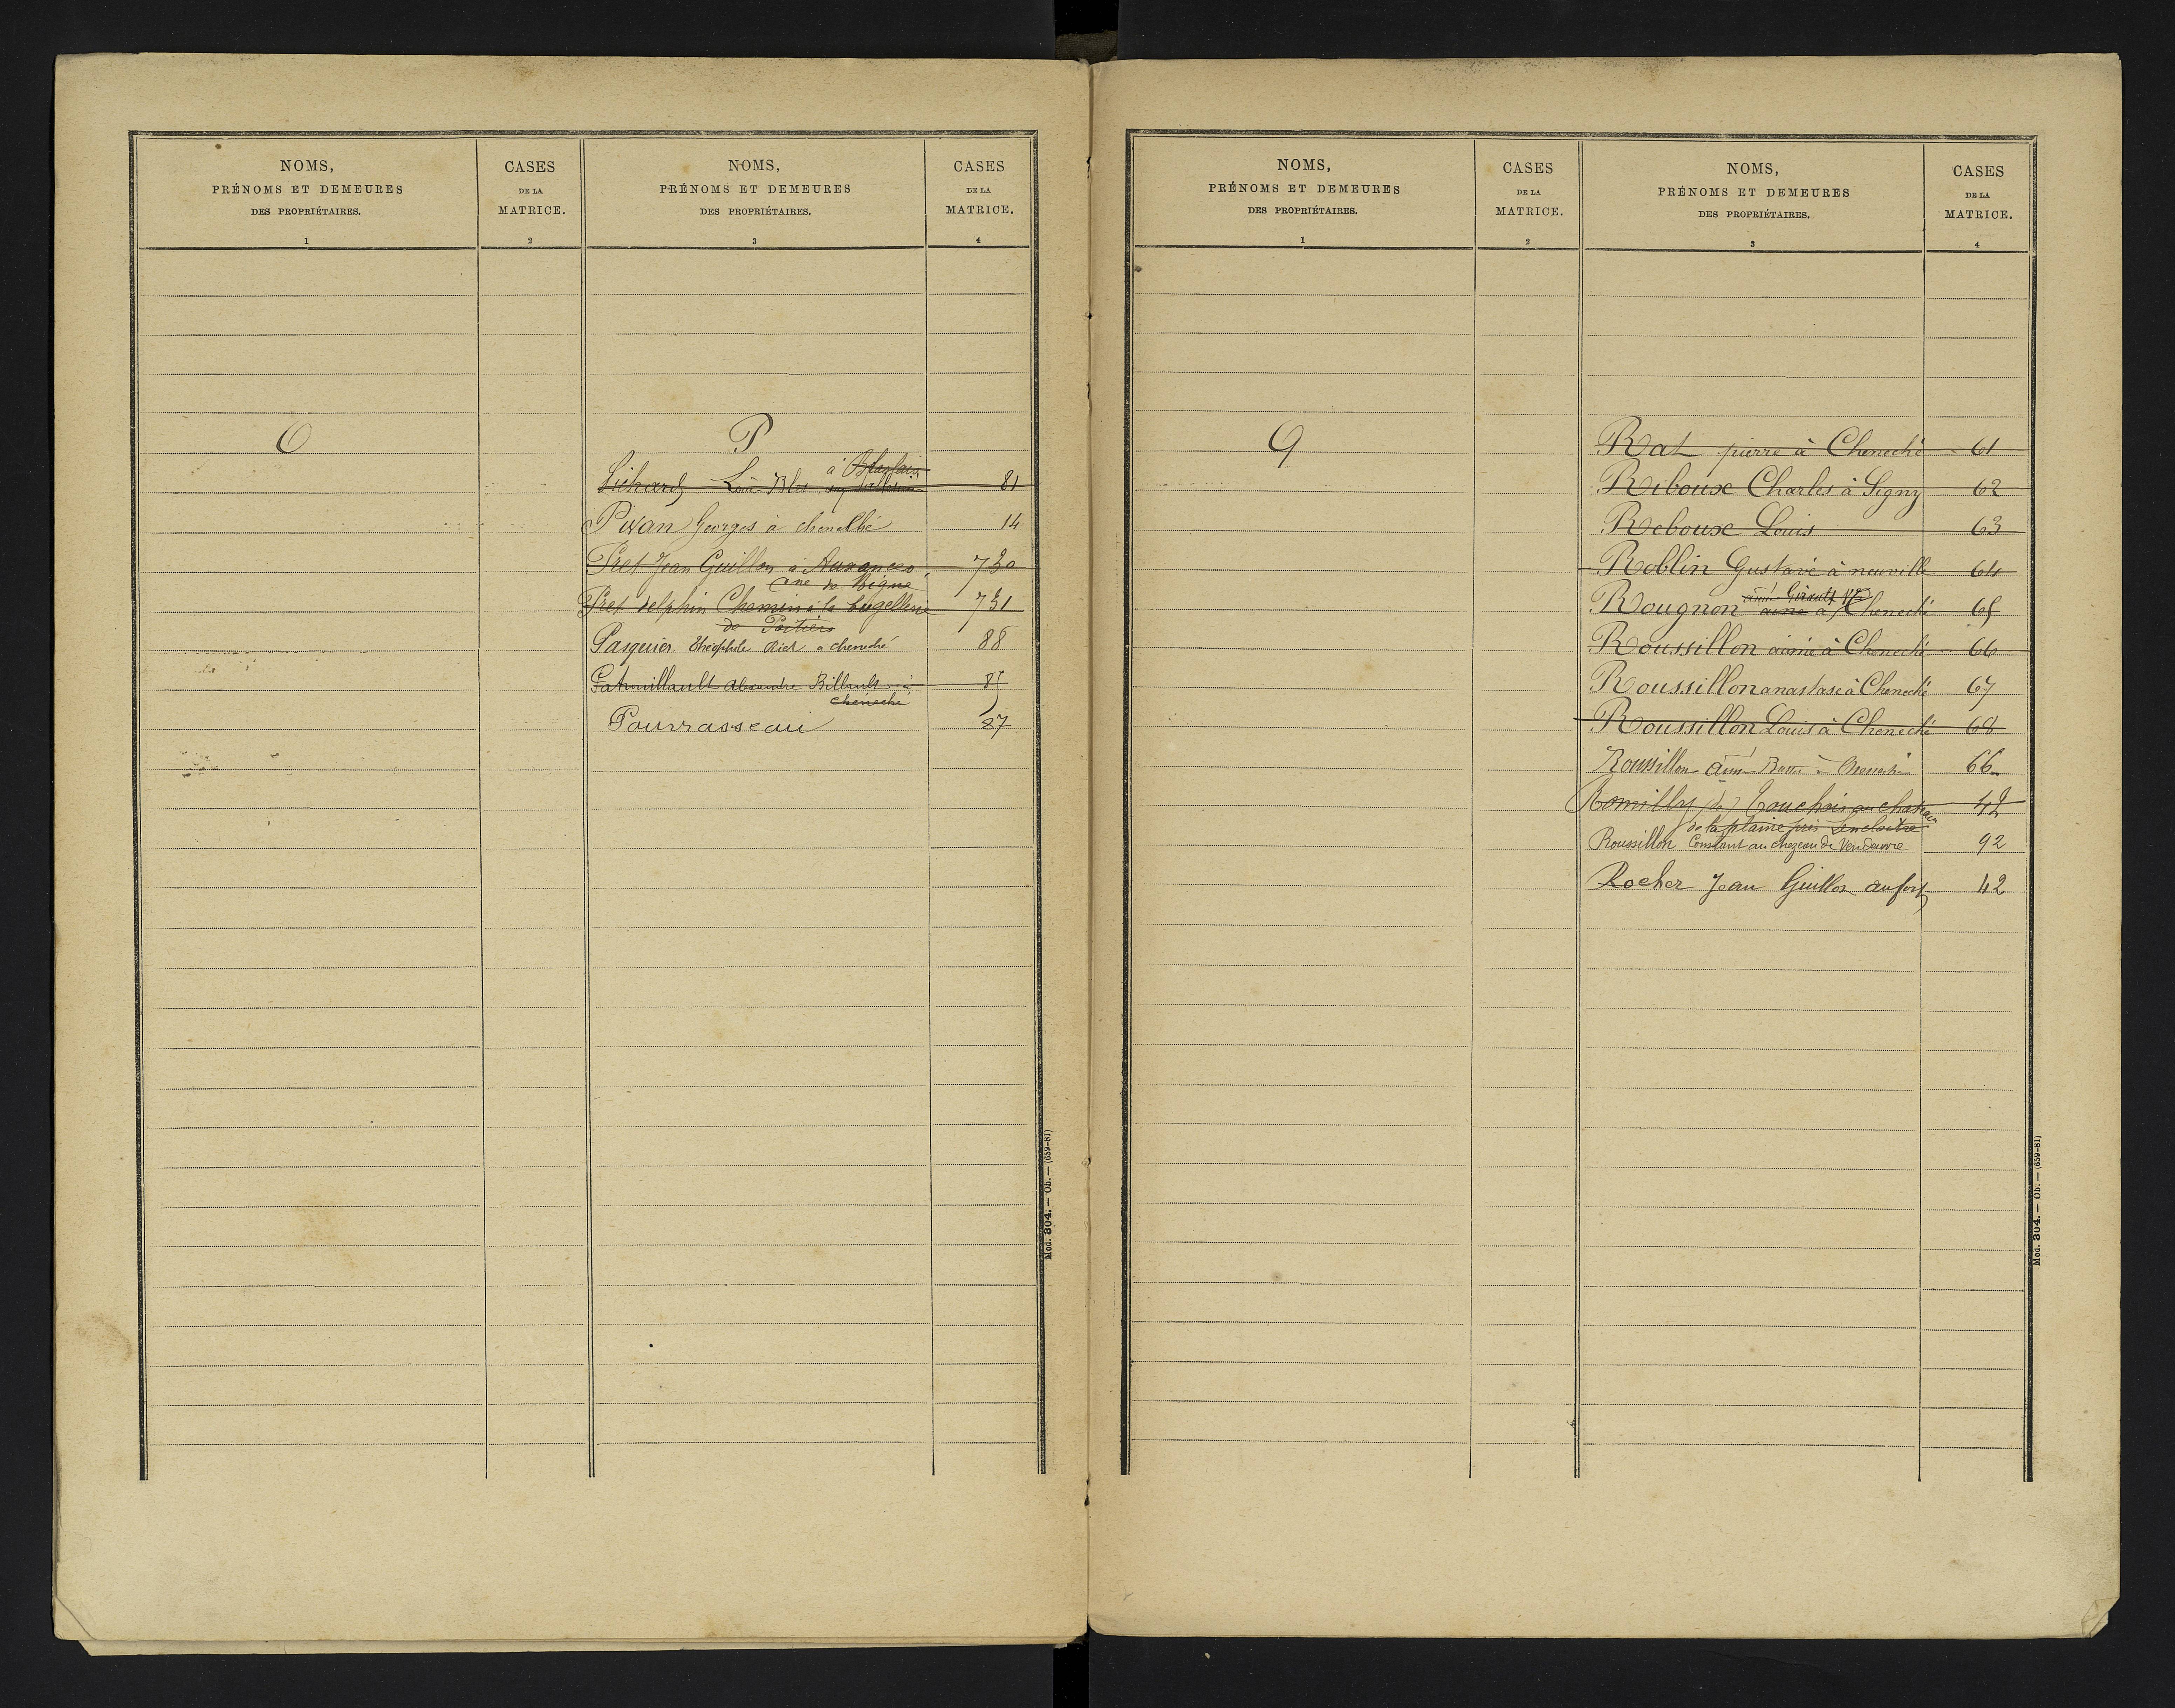 NOMS,
PRÉNOMS ET DEMEURES
DES PROPRIÉTAIRES.
1
CASES
DE LA
MATRICE.
2
NOMS,
PRÉNOMS ET DEMEURES
DES PROPRIÉTAIRES.
3
CASES
DE LA
MATRICE.
4
O
P
à
Pichard Louis 81
Pivan Georges à cheneché 14
Pret Jean Guillon à Auxances 730
cne de Migné
Pret delphin Chemin à la bugellerie 731
de Poitiers
Pasquier Théophile Riet a cheneché 88
Patrouillault Alexandre Billault à 85
cheneché
Pourrasseau 87
Mod. 304. — Ob. — (659-81)
NOMS,
PRÉNOMS ET DEMEURES
DES PROPRIÉTAIRES.
1
CASES
DE LA
MATRICE.
2
NOMS,
PRÉNOMS ET DEMEURES
DES PROPRIÉTAIRES.
3
CASES
DE LA
MATRICE.
4
Q
Rat pierre à Cheneché 61
Riboux Charles à Signy 62
Reboux Louis 63
Roblin Gustave à neuville 64
aimé Girault
Rougnon à Cheneché 65
Roussillon aimé à Cheneché 66
Roussillon anastase à Cheneché 67
Roussillon Louis à Cheneché 68
Roussillon aimé à Cheneché 66
Romilly de Touchois au chateau 42
de la plaine près Lencloitre
Roussillon Constant au chezeau de Vendeuvre 92
Rocher Jean Guillon au fort 42
Mod. 304. — Ob. — (659-81)